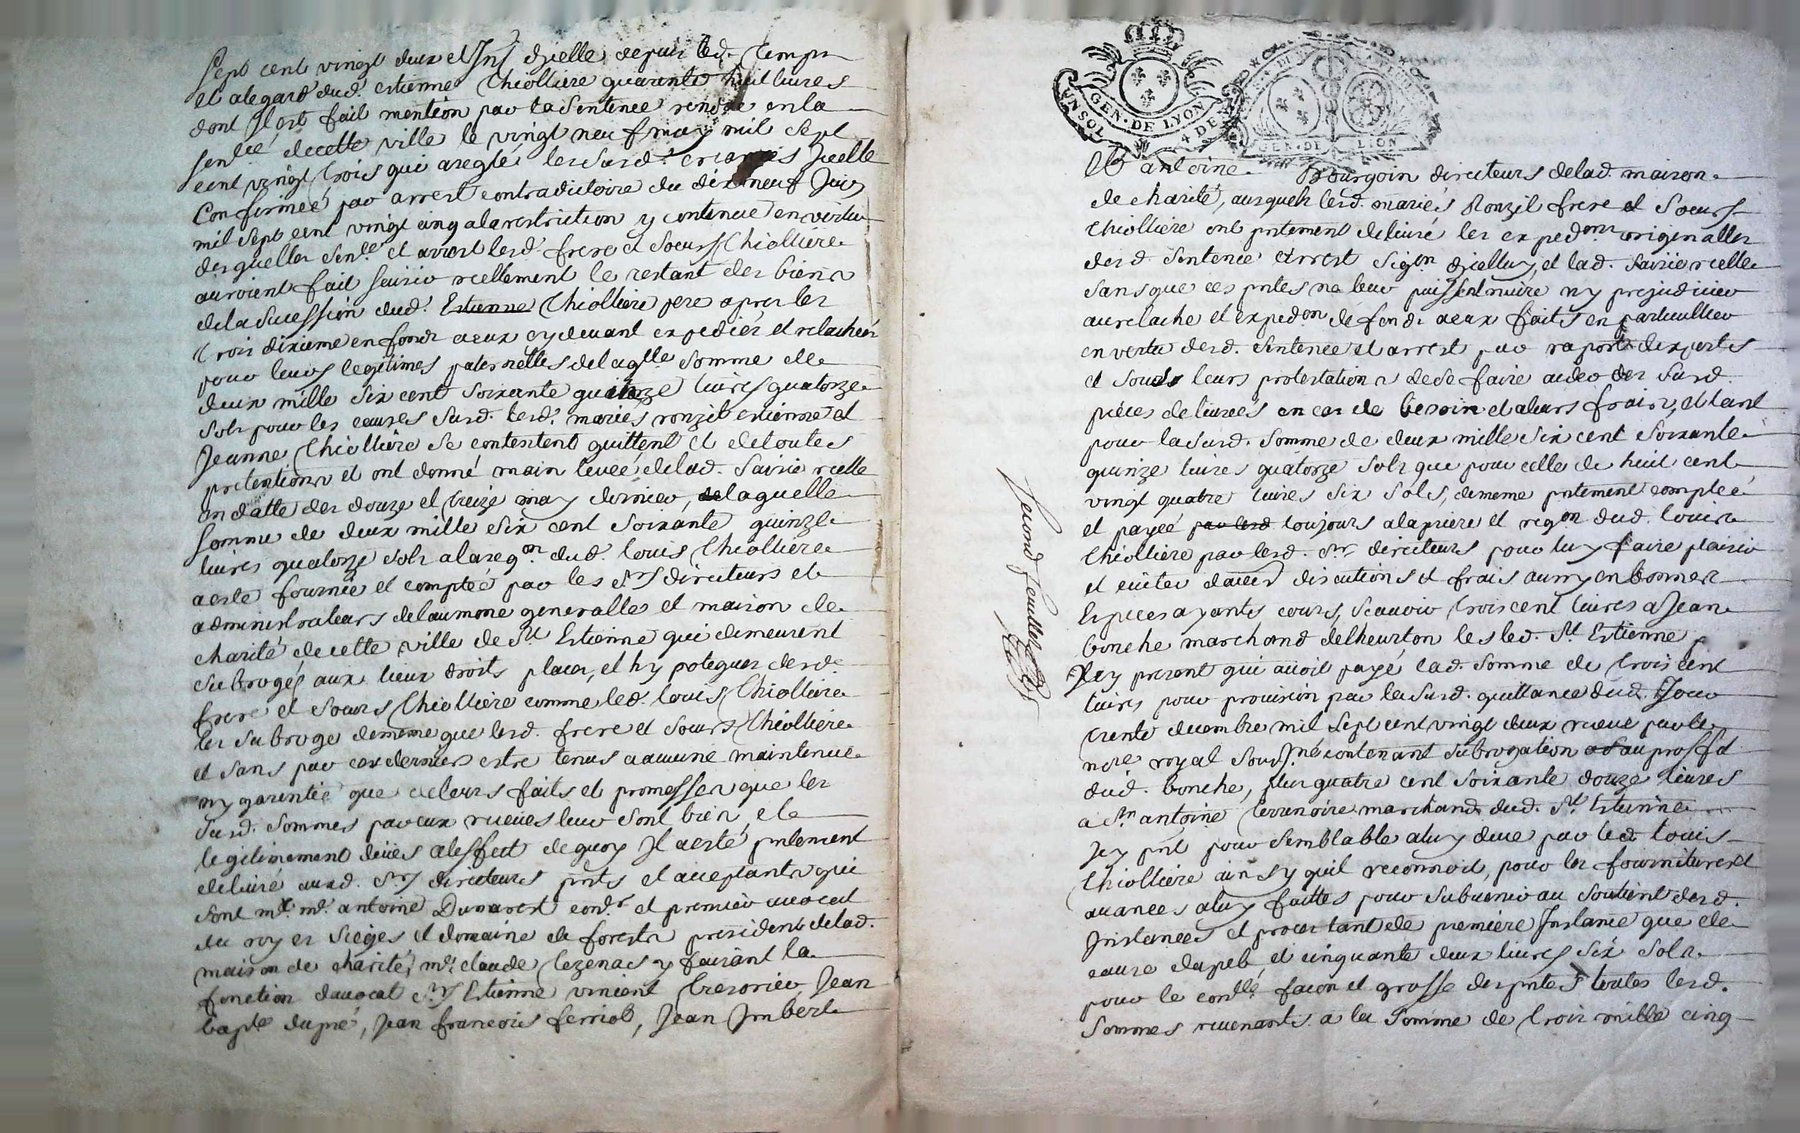 Sept cent vingt deux et Jnts dyielle depuis led. temps
et alegard dud. estienne Chiolliere quarante huit livres
dont Jl est fait mention par la Sentence rendue en la
senlcé decette ville le vingt neuf may mil sept
cent vingt trois qui areglé lesSusd. Jcelle
Confirmée par arrest contradictoire du dixneuf Juin
mil sept cent vingt cinq alarestriction y contenue en vertu
desquelles Senle. et arrest lesd. frere et Soeurs Chiolliere
auroient fait saisir reellement le restant des biens
delaSucession dud. Estienne Chiolliere pere apres les
trois dixieme en fonds aeux cydevant expediés et relachés
pour leurs legitimes paternelles delaqlle somme de
deux mille six cent soixante quinze livres quatorze
sols pour les causes Susd. lesd. mariés ronzil estienne et
Jeanne Chiolliere se contentent quittent et de toutes
pretentions et ont donné main levée delad. saisie reelle
en datte des douze et treize may dernier, delaquelle
somme de deux mille six cent soixante quinze
livres quatorze sols alareqon dud. louis Chiolliere
aeste fournie et comptée par les Srs directeurs et
administrateurs delaumone generalle et maison de
charité decette ville de St Estienne qui demeurent
subrogés aux lieux droits places, et hypoteques desd.
frere et soeurs Chiolliere comme led. louis Chiolliere
les subroge dememe que lesd. frere et soeurs Chiolliere
et sans par ces derniers estre tenus aaucune maintenue
ny garentie que deleurs faits et promesses que les
susd. sommes par eux receues leur sont bien et
legitimement deües aleffect dequoy Jl aesté pntement
delivré auxd. Srs directeurs pnts et acceptants qui
sont mre. me. antoine Dumarest conr. et premier avocat
du roy es sieges et domaine de forests president delad.
maison de charité, me. claude Cezenas y faisant la
fonction davocat Srs Estienne vincent tresorier, Jean
bapte dupré, Jean francois ferriol, Jean Jmbert
UN SOL
GEN. DE LYON
4 DE
GEN. DE LION
et antoine Bourgoin directeurs delad. maison
de charité, ausquels lesd. mariés Ronzil frere et soeurs
Chiolliere ont pntement delivré les expedons originalles
desd. Sentence arrest sigon dyielluy, et lad. saisie reelle
sans que ces pntes ne leur puissent nuire ny prejudicier
aurelache et expedon de fonds aeux faits en particullier
en vertu desd. Sentence et arrest par raport dexperts
et sous leurs protestations de se faire aider des susd.
pièces delivrées en cas de besoin et aleurs frais, et tant
pour lasusd. somme de deux mille six cent soixante
quinze livres quatorze sols que pour celle de huit cent
vingt quatre livres six sols, dememe pntement comptée
et payée par lesd toujours alapriere et reqon dud. louis
Chiolliere par lesd. Srs directeurs pour luy faire plaisir
et eviter dautres discutions et frais aussy en bonnes
Especes ayants cours, scavoir trois cent livres a Jean
bonche marchand delheurton les led. St Estienne
Jcy present qui avoit payé lad. somme de trois cent
livres pour provision par la susd. quittance dud. Jour
trente decembre mil sept cent vingt deux receue par le
nore royal souse. contenant subrogation au proffit
dud. bonche, plus quatre cent soixante douze livres
a Sr. antoine terrenoire marchand dud. St Estienne
Jcy pnt pour semblable aluy deue par led. louis
Chiolliere ainsy quil reconnoit, pour les fournitures et
avances aluy faittes pour subvenir au soutient desd.
Jnstances et proces tant de premiere Jnstance que de
cause dapel, et cinquante deux livres six sols
pour le conlle, façon et grosse des pntes toutes lesd.
sommes revenants a la somme de trois mille cinq
Second feuillet